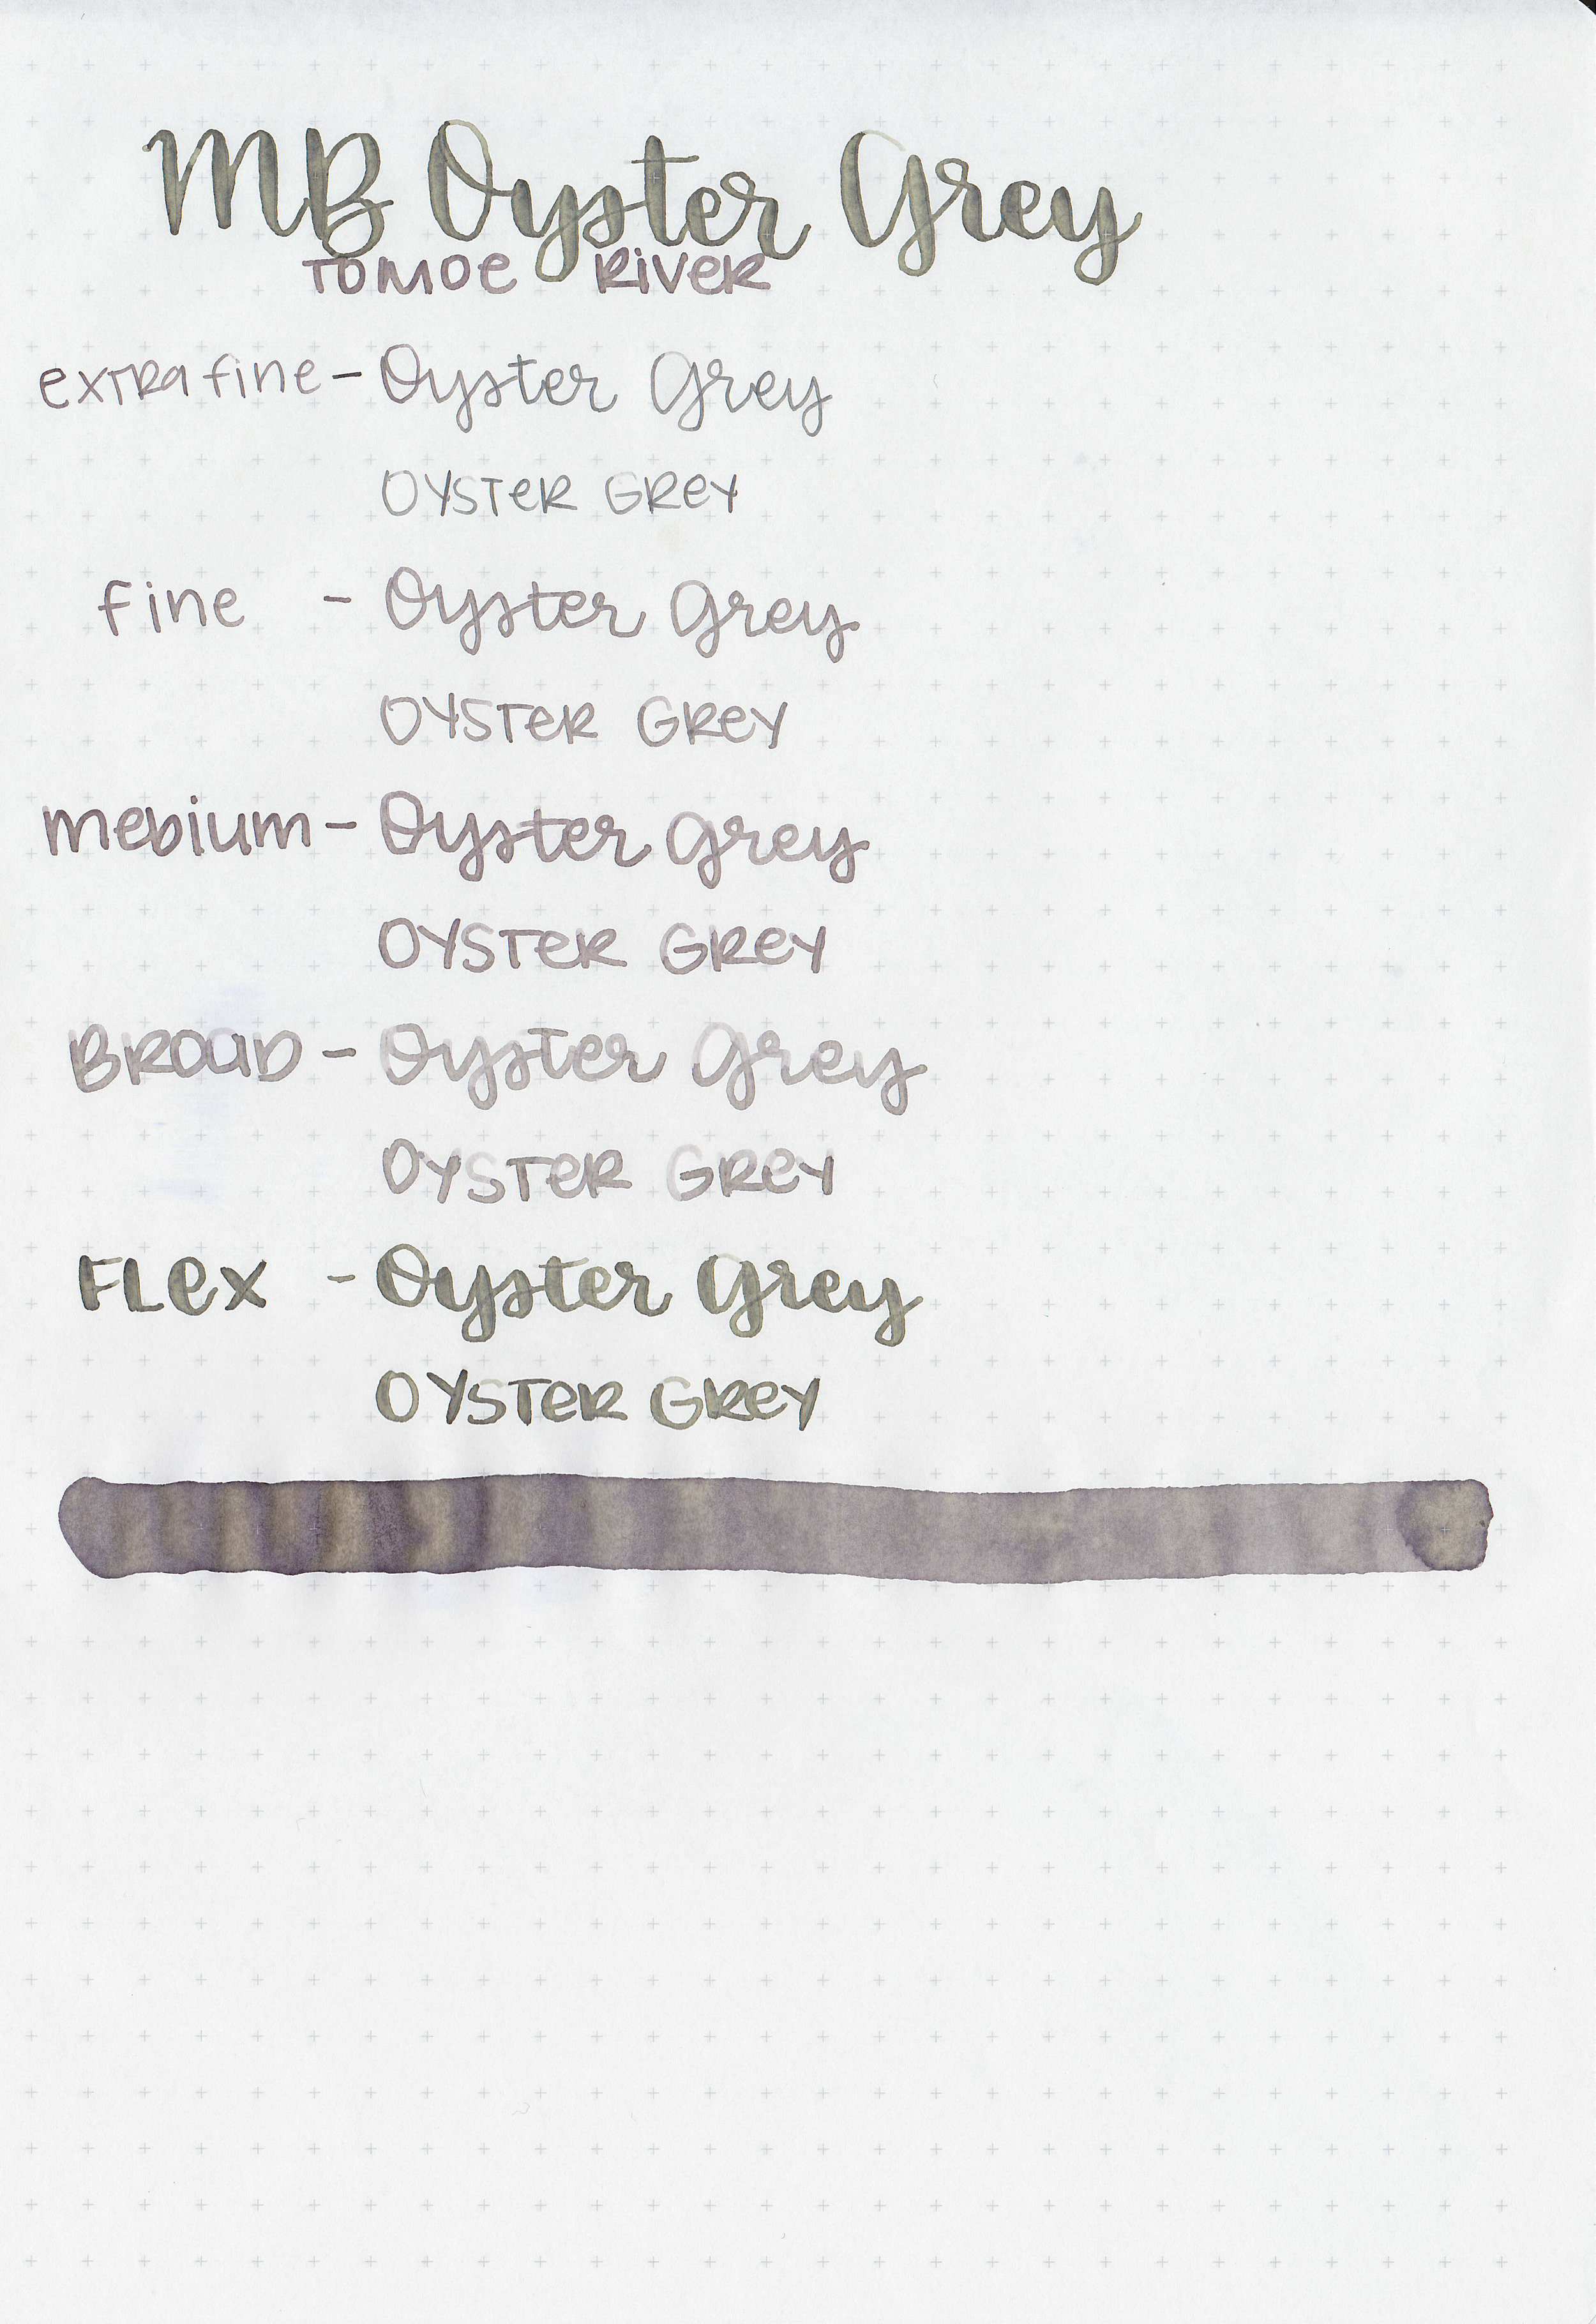 MB Oyster Grey
TOMOE RIVER
extra fine - Oyster Grey
OYSTER GREY
fine - Oyster Grey
OYSTER GREY
medium - Oyster Grey
OYSTER GREY
BROAD - Oyster Grey
OYSTER GREY
FLEX - Oyster Grey
OYSTER GREY